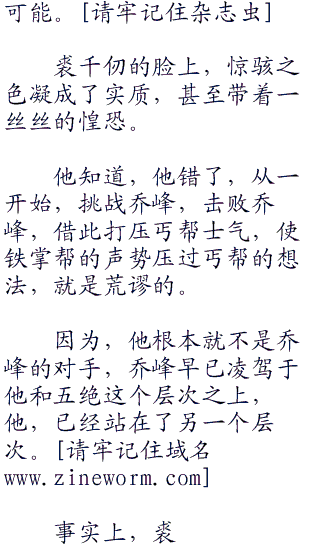 可能。[请牢记住杂志虫]
裘千仞的脸上，惊骇之
色凝成了实质，甚至带着一
丝丝的惶恐。
他知道，他错了，从一
开始，挑战乔峰，击败乔
峰，借此打压丐帮士气，使
铁掌帮的声势压过丐帮的想
法，就是荒谬的。
因为，他根本就不是乔
峰的对手，乔峰早已凌驾于
他和五绝这个层次之上，
他，已经站在了另一个层
次。[请牢记住域名
www.zineworm.com]
事实上，裘